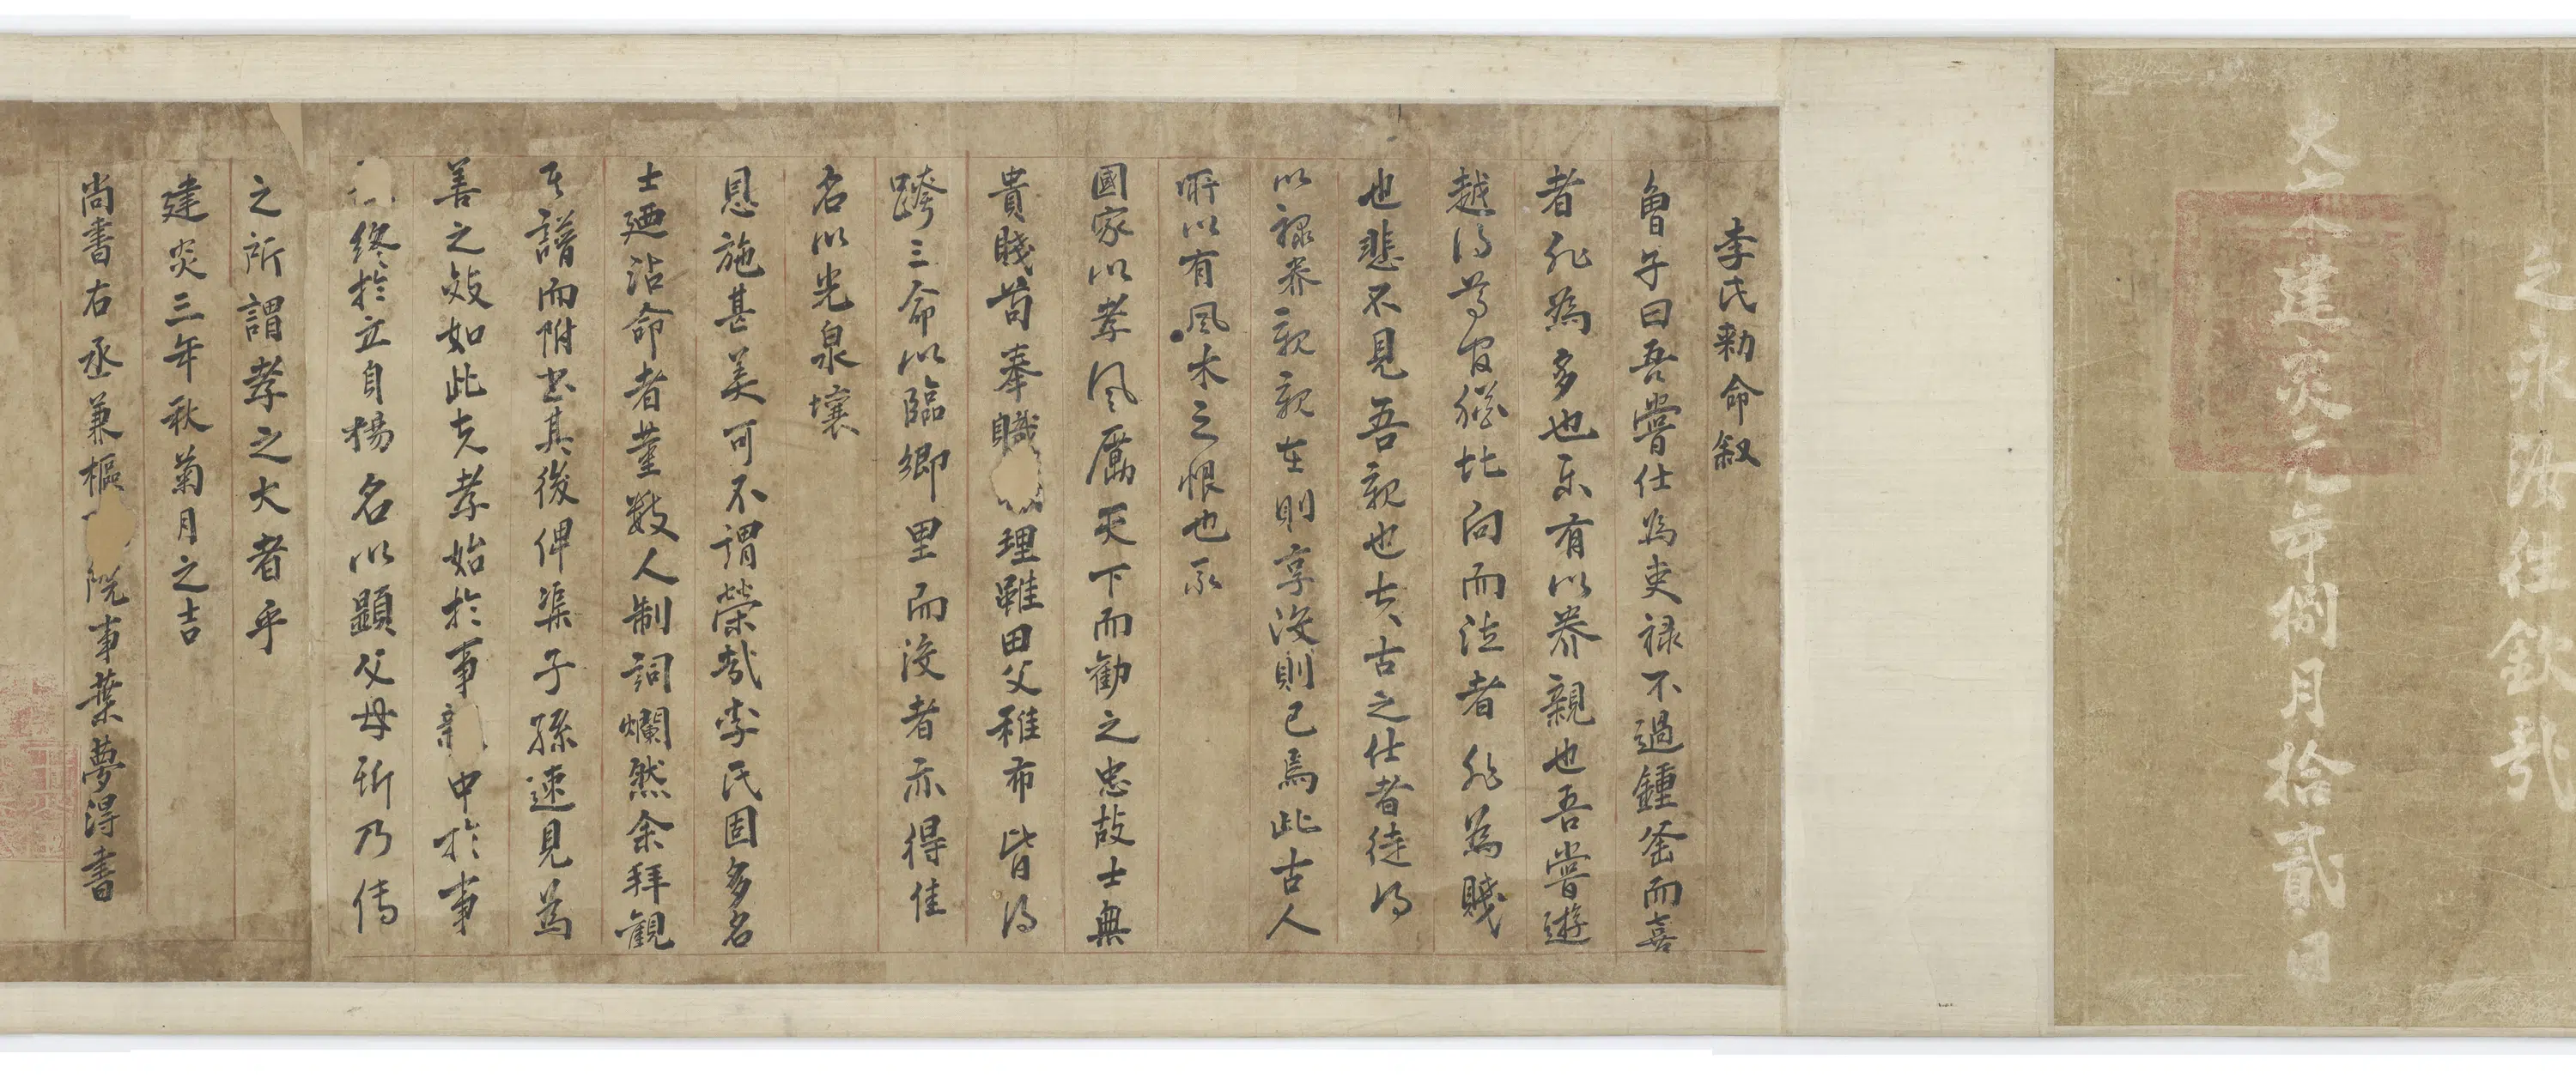 之永汝往欽哉
大宋建炎元年捌月拾貳日
李氏勑命叙
曾子曰吾嘗仕為吏祿不過鍾釜而喜
者非為多也樂有以養親也吾嘗遊
越得尊官猶北向而泣者非為賤
也悲不見吾親也夫古之仕者徒得
以祿養親親在則享沒則已焉此古人
所以有風木之恨也我
國家以孝風厲天下而勸之忠故士無
貴賤苟奉職理雖田父稚布皆得
躋三命以臨鄉里而沒者亦得佳
名以光泉壤
恩施甚美可不謂榮哉李氏固多名
士廼沾命者董數人制詞爛然余拜觀
其譜而附書其後俾渠子孫速見為
善之效如此夫孝始於事親中於事
終於立自揚名以顯父母斯乃傳
之所謂孝之大者乎
建炎三年秋菊月之吉
尚書右丞兼樞院事葉夢得書